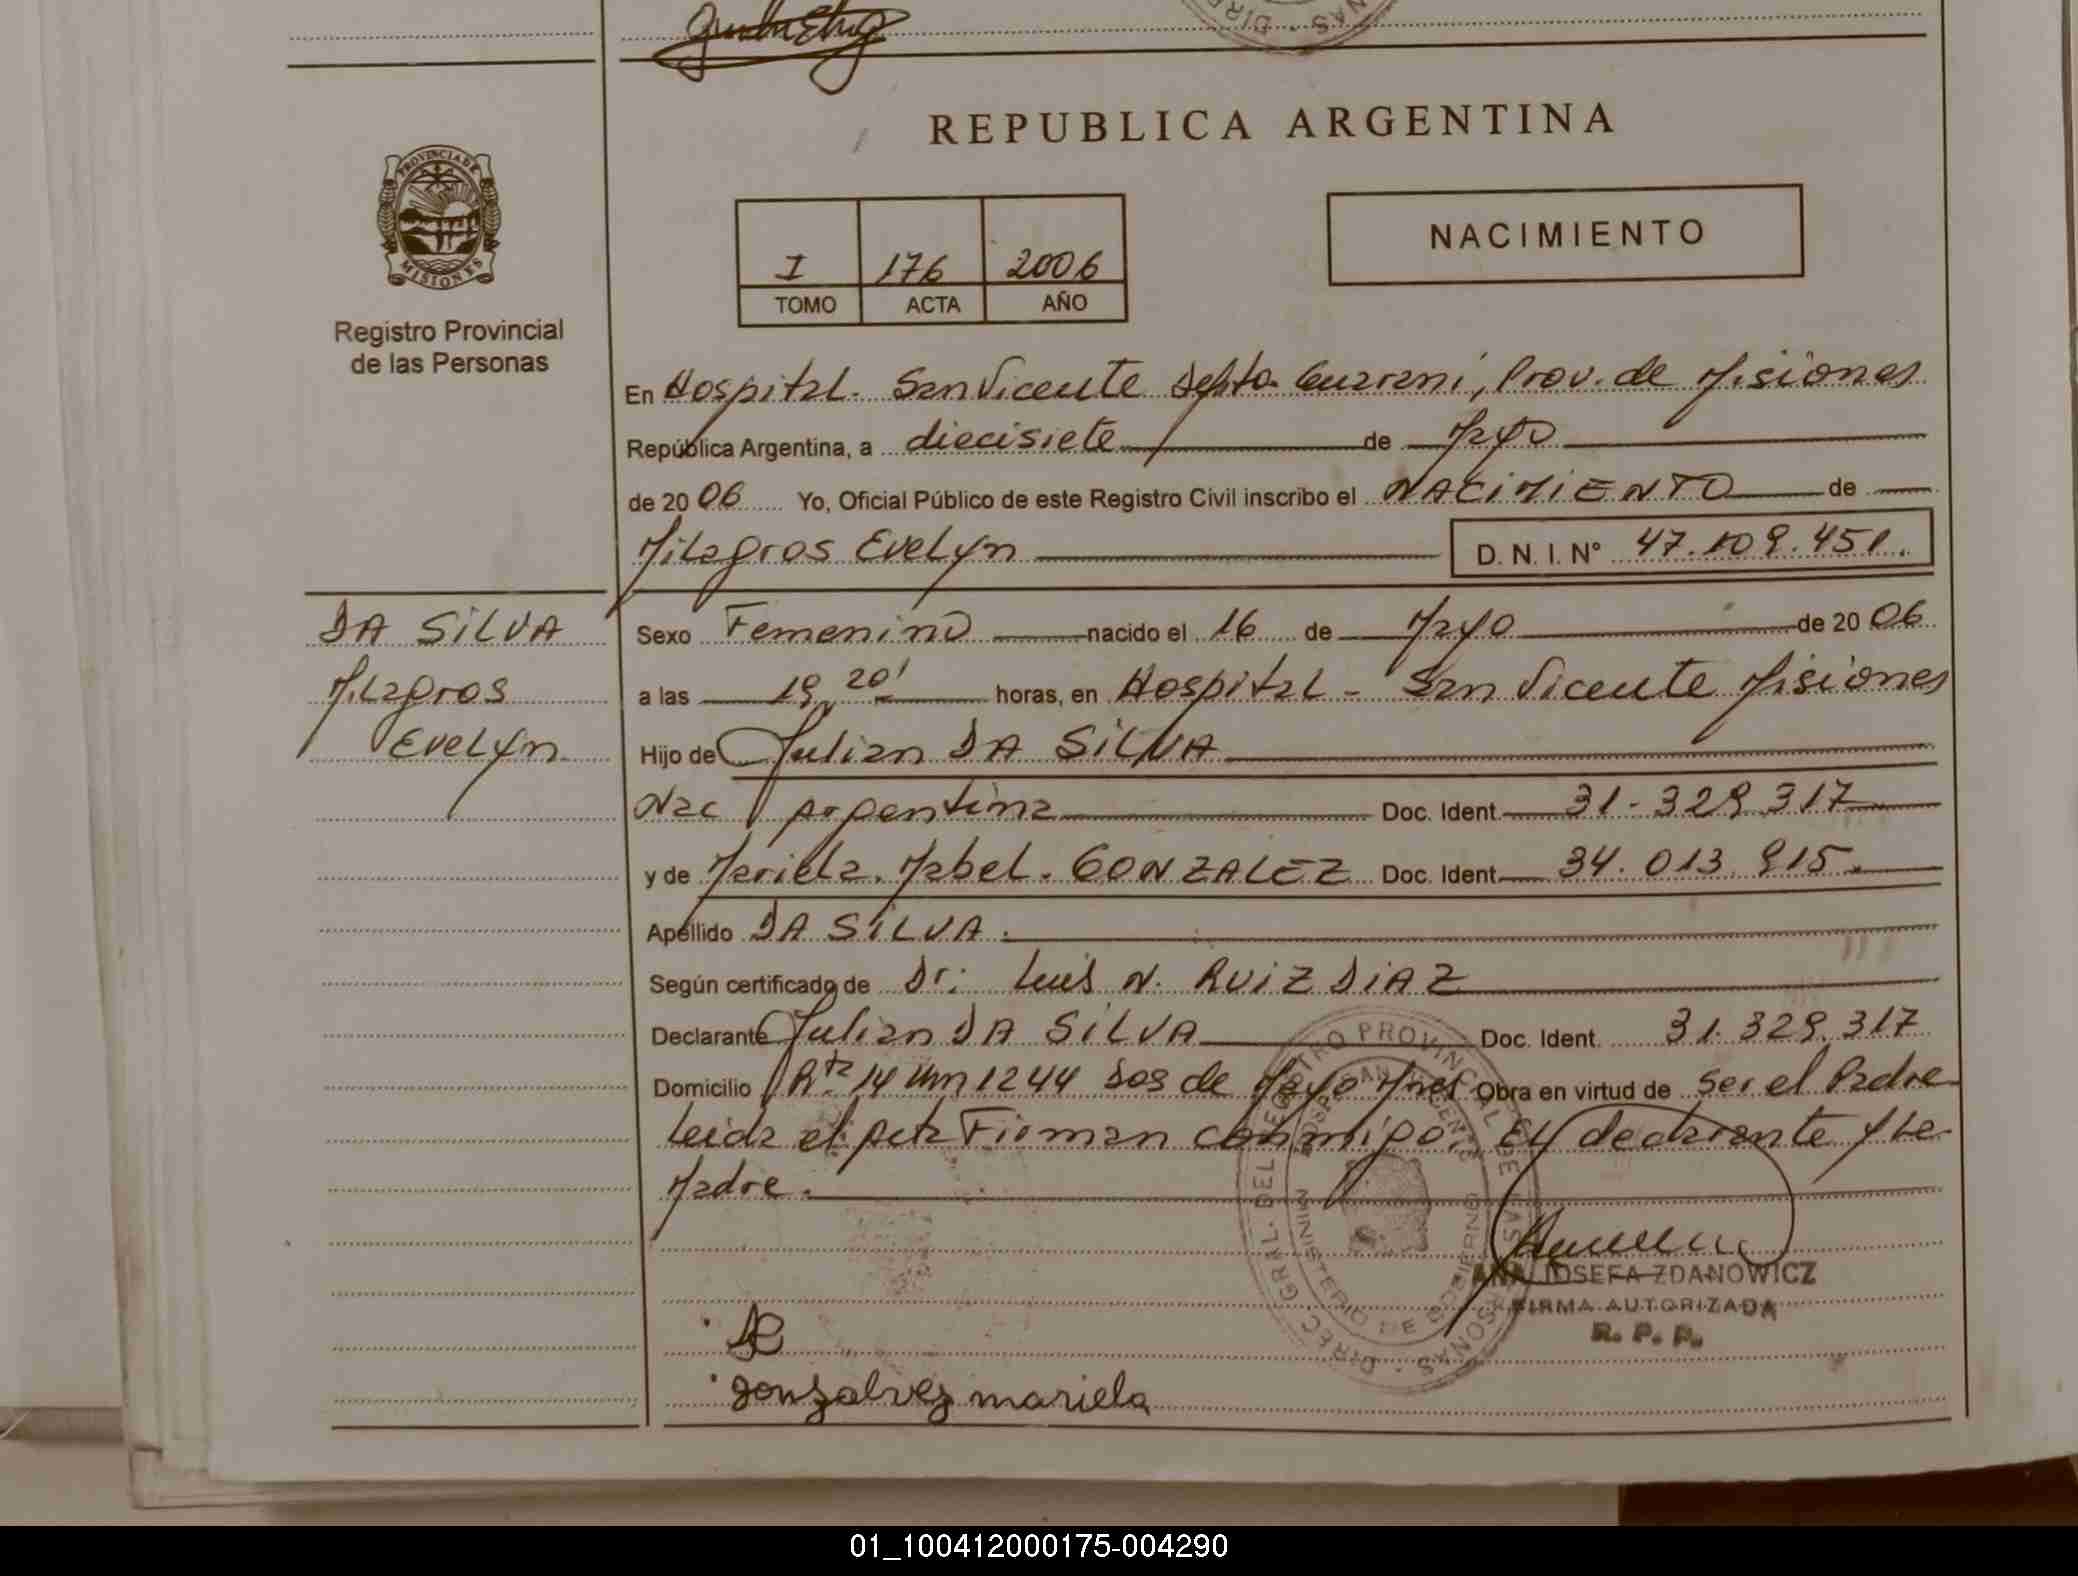 REPUBLICA ARGENTINA
PROVINCIA DE MISIONES
Registro Provincial
de las Personas
I 176 2006
TOMO ACTA AÑO
NACIMIENTO
En Hospital. San Vicente Depto. Guarani, Prov. de Misiones
República Argentina, a diecisiete de Mayo
de 20 06 Yo, Oficial Público de este Registro Civil inscribo el NACIMIENTO de
Milagros Evelyn D. N. I. N° 47.109.451.
DA SILVA
Milagros
Evelyn
Sexo Femenino nacido el 16 de Mayo de 20 06
a las 19 20' horas, en Hospital - San Vicente Misiones
Hijo de Julian DA SILVA
Nac Argentina Doc. Ident. 31-329.317
y de Mariela. Mabel. GONZALEZ Doc. Ident. 34.013.915.
Apellido DA SILVA.
Según certificado de Dr. Luis N. RUIZ DIAZ
Declarante Julian DA SILVA Doc. Ident. 31.329.317
Domicilio Rta 14 Km 1244 Dos de Mayo Mnes Obra en virtud de ser el Padre
Leida el Acta Firman conmigo. El declarante y la
Madre.
DIREC. GRAL. DEL REGISTRO PROVINCIAL DE LAS PERSONAS
HOSP. SAN VICENTE
MINISTERIO DE GOBIERNO
ANA JOSEFA ZDANOWICZ
FIRMA AUTORIZADA
R. P. P.
gonzalvez mariela
01_100412000175-004290